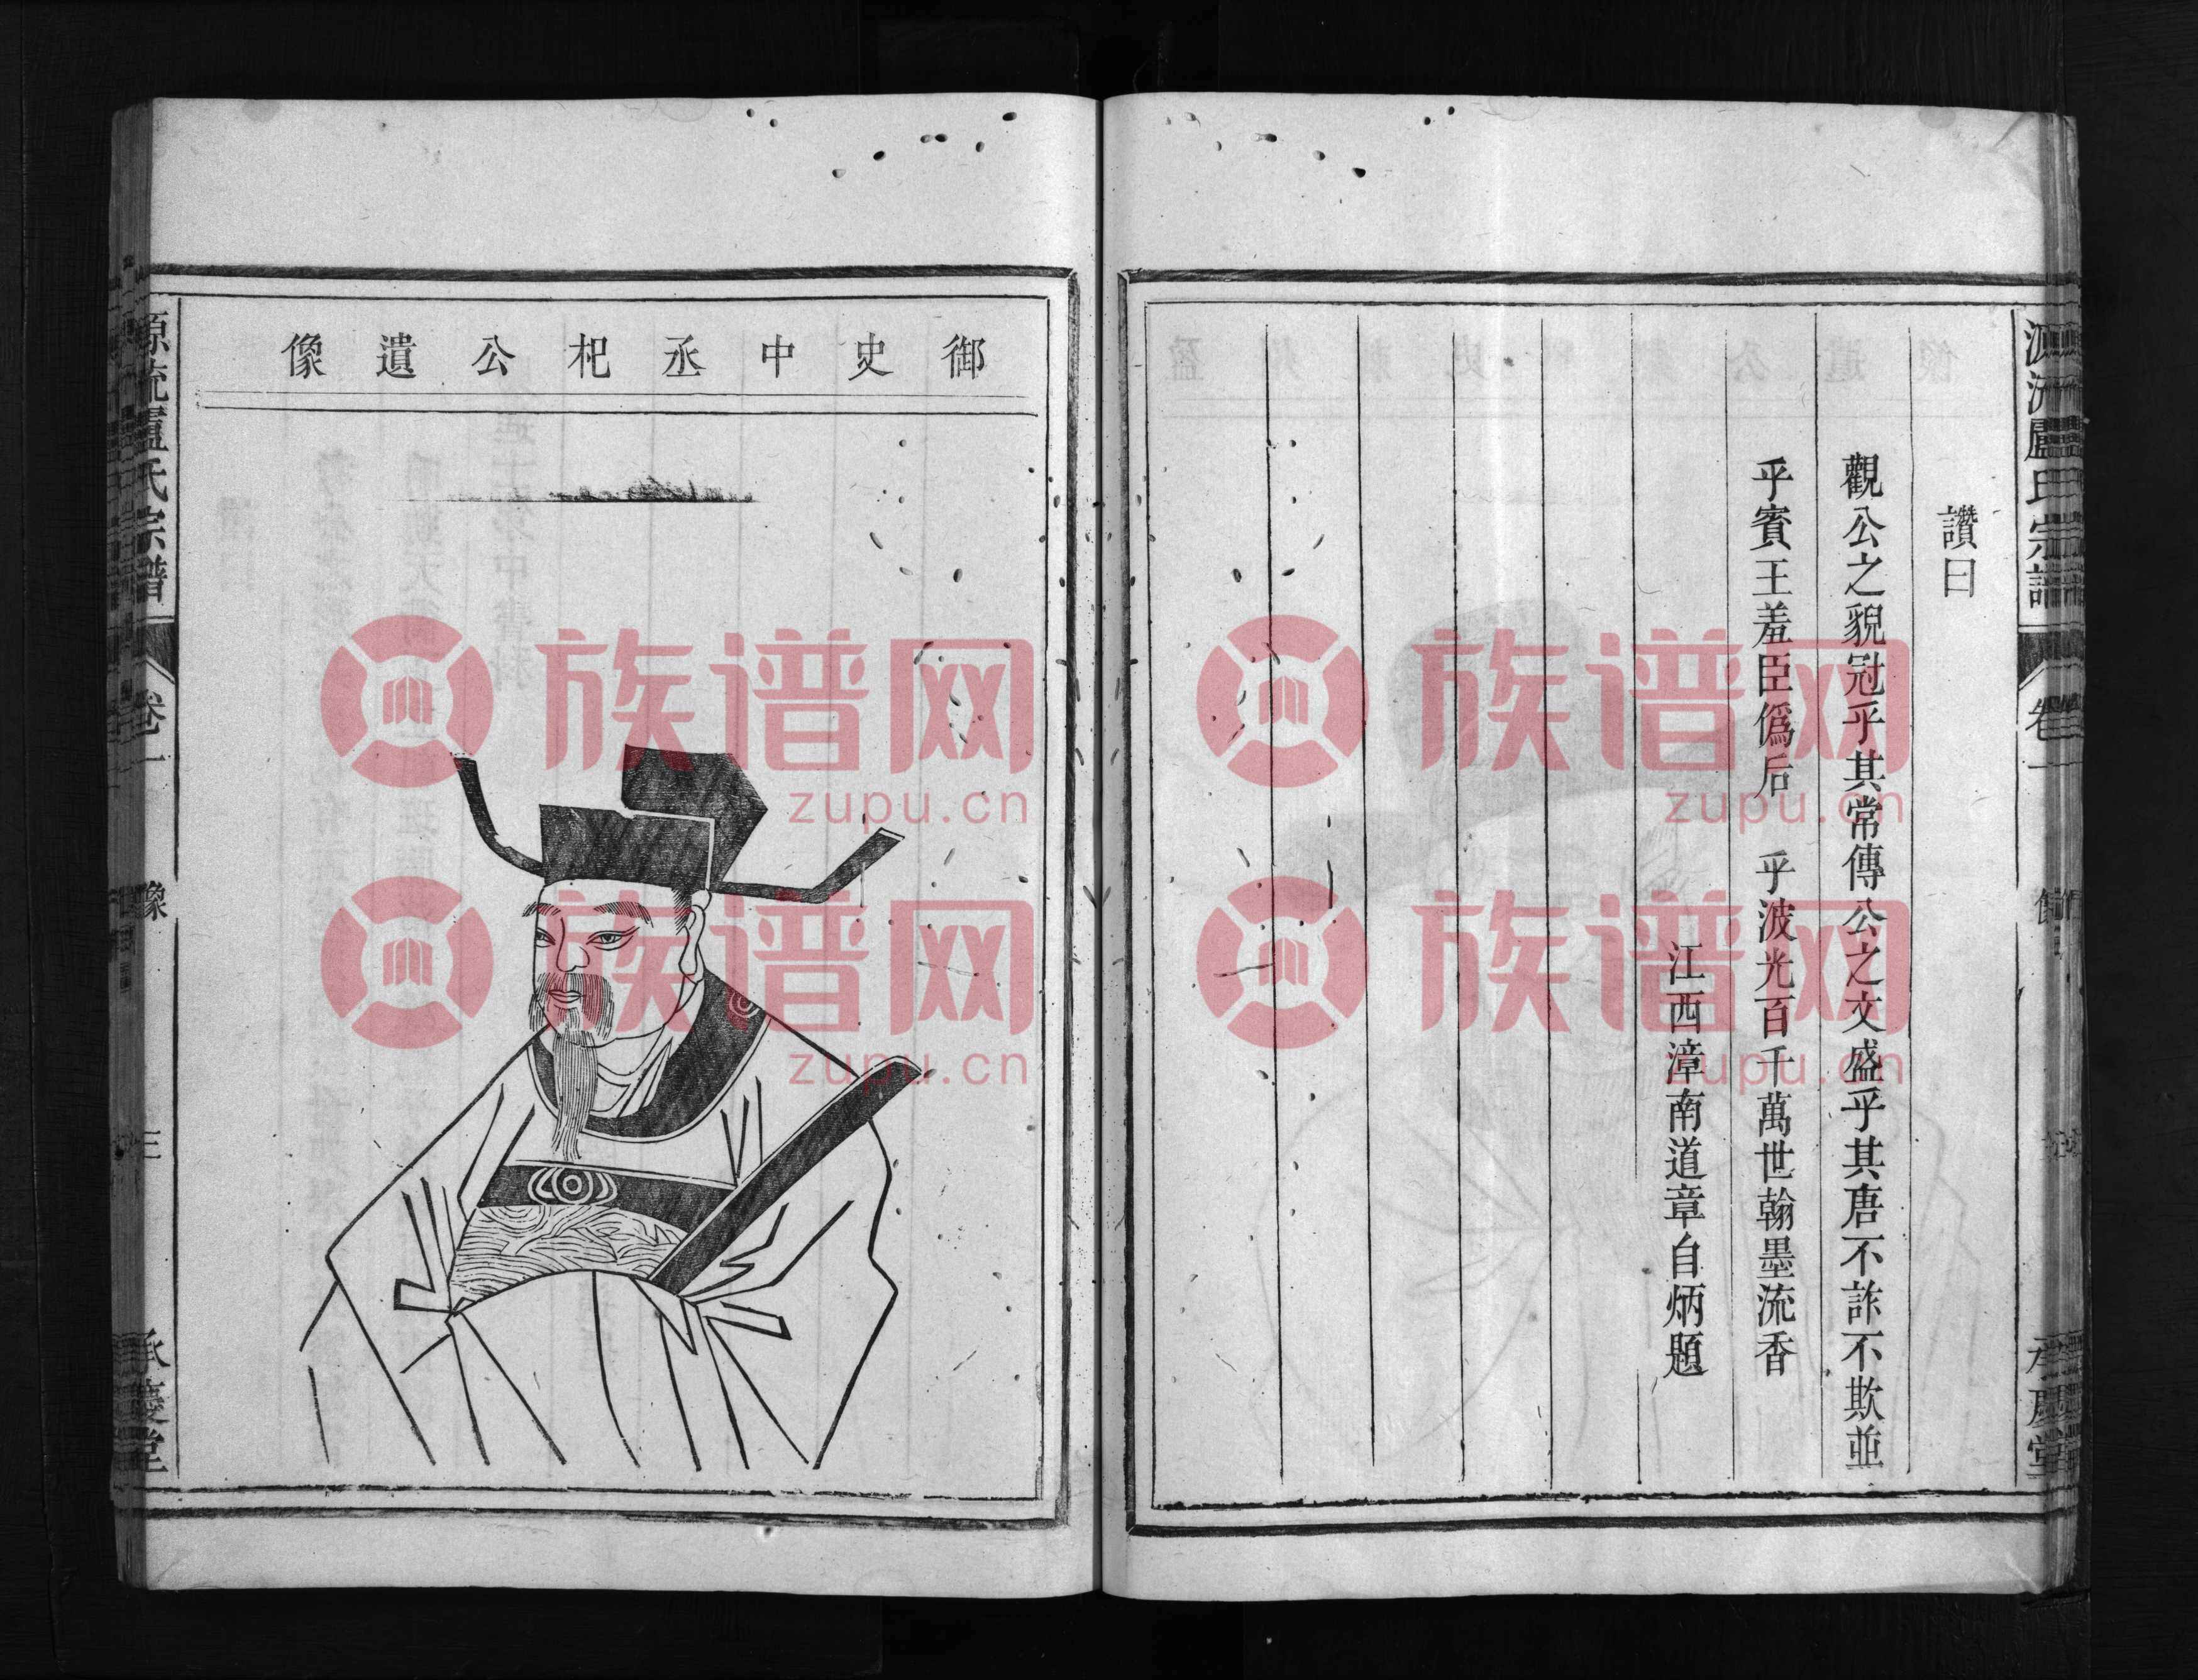 讚曰
觀公之貌冠乎其常傳公之文盛乎其唐不詐不欺並
乎賓王羞臣僞后　乎波光百千萬世翰墨流香
江西漳南道章自炳題
御史中丞杞公遺像
源流盧氏宗譜
卷一
像
三
承慶堂
族谱网
zupu.cn
族谱网
zupu.cn
族谱网
zupu.cn
族谱网
zupu.cn